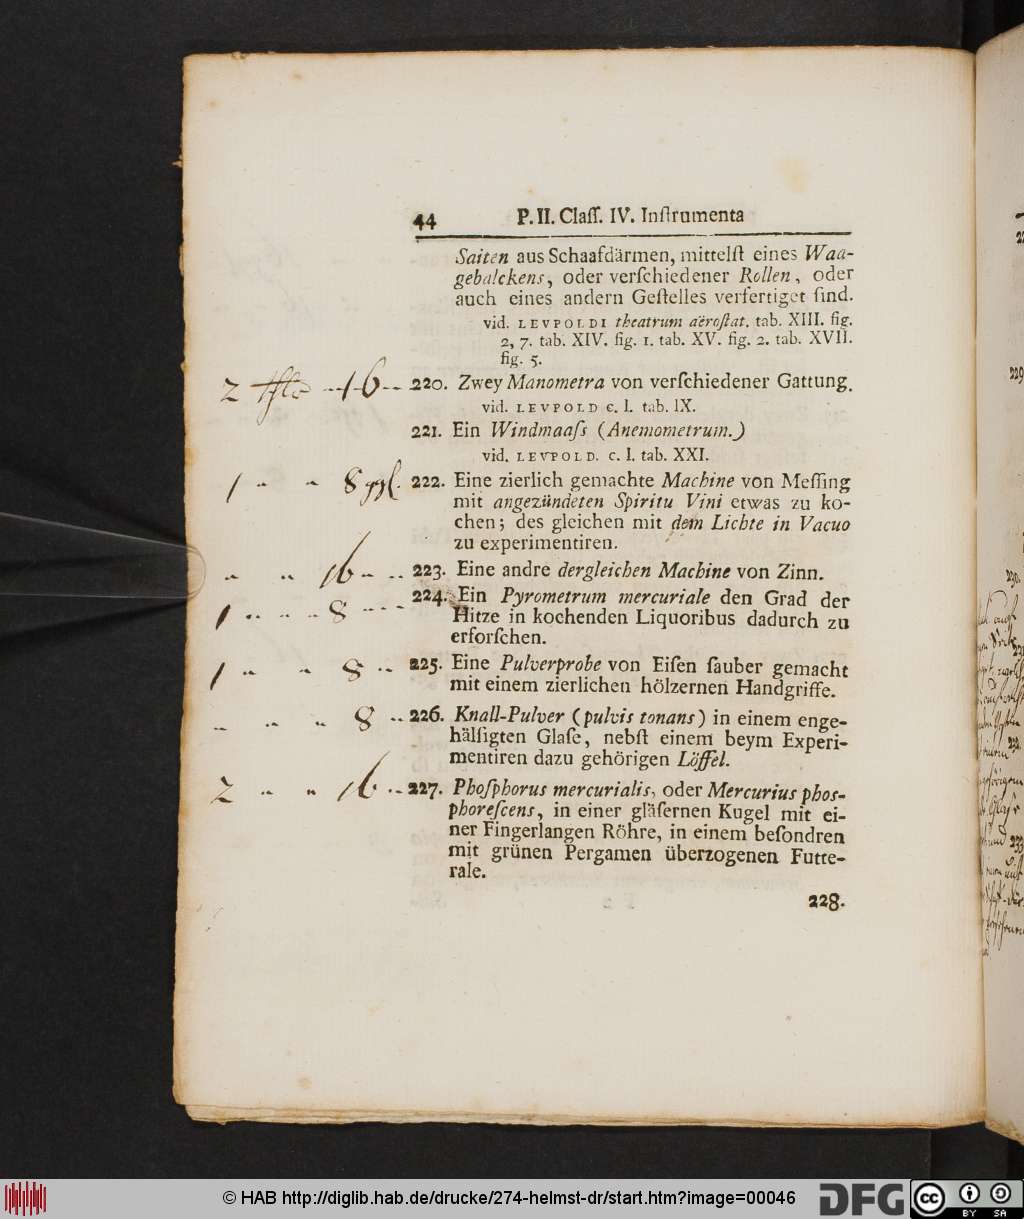 44 P. II. Claſſ. IV. Inſtrumenta
Saiten aus Schaafdärmen, mittelſt eines Waa-
gebalckens, oder verſchiedener Rollen, oder
auch eines andern Geſtelles verfertiget ſind.
vid. LEVPOLDI theatrum aëroſtat. tab. XIII. fig.
2, 7. tab. XIV. fig. 1. tab. XV. fig. 2. tab. XVII.
fig. 5.
2 16 220. Zwey Manometra von verſchiedener Gattung.
vid. LEVPOLD c. l. tab. IX.
221. Ein Windmaaſs (Anemometrum.)
vid. LEVPOLD. c. l. tab. XXI.
1 " " 8 ggl. 222. Eine zierlich gemachte Machine von Meſſing
mit angezündeten Spiritu Vini etwas zu ko-
chen; des gleichen mit dem Lichte in Vacuo
zu experimentiren.
" " 16 223. Eine andre dergleichen Machine von Zinn.
1 " " 8 224. Ein Pyrometrum mercuriale den Grad der
Hitze in kochenden Liquoribus dadurch zu
erforſchen.
1 " " 8 225. Eine Pulverprobe von Eiſen ſauber gemacht
mit einem zierlichen hölzernen Handgriffe.
" " " 8 226. Knall-Pulver (pulvis tonans) in einem enge-
hälſigten Glaſe, nebſt einem beym Experi-
mentiren dazu gehörigen Löffel.
2 " " 16 227. Phoſphorus mercurialis, oder Mercurius phos-
phoreſcens, in einer gläſernen Kugel mit ei-
ner Fingerlangen Röhre, in einem beſondren
mit grünen Pergamen überzogenen Futte-
rale.
228.
© HAB http://diglib.hab.de/drucke/274-helmst-dr/start.htm?image=00046
DFG
cc BY SA